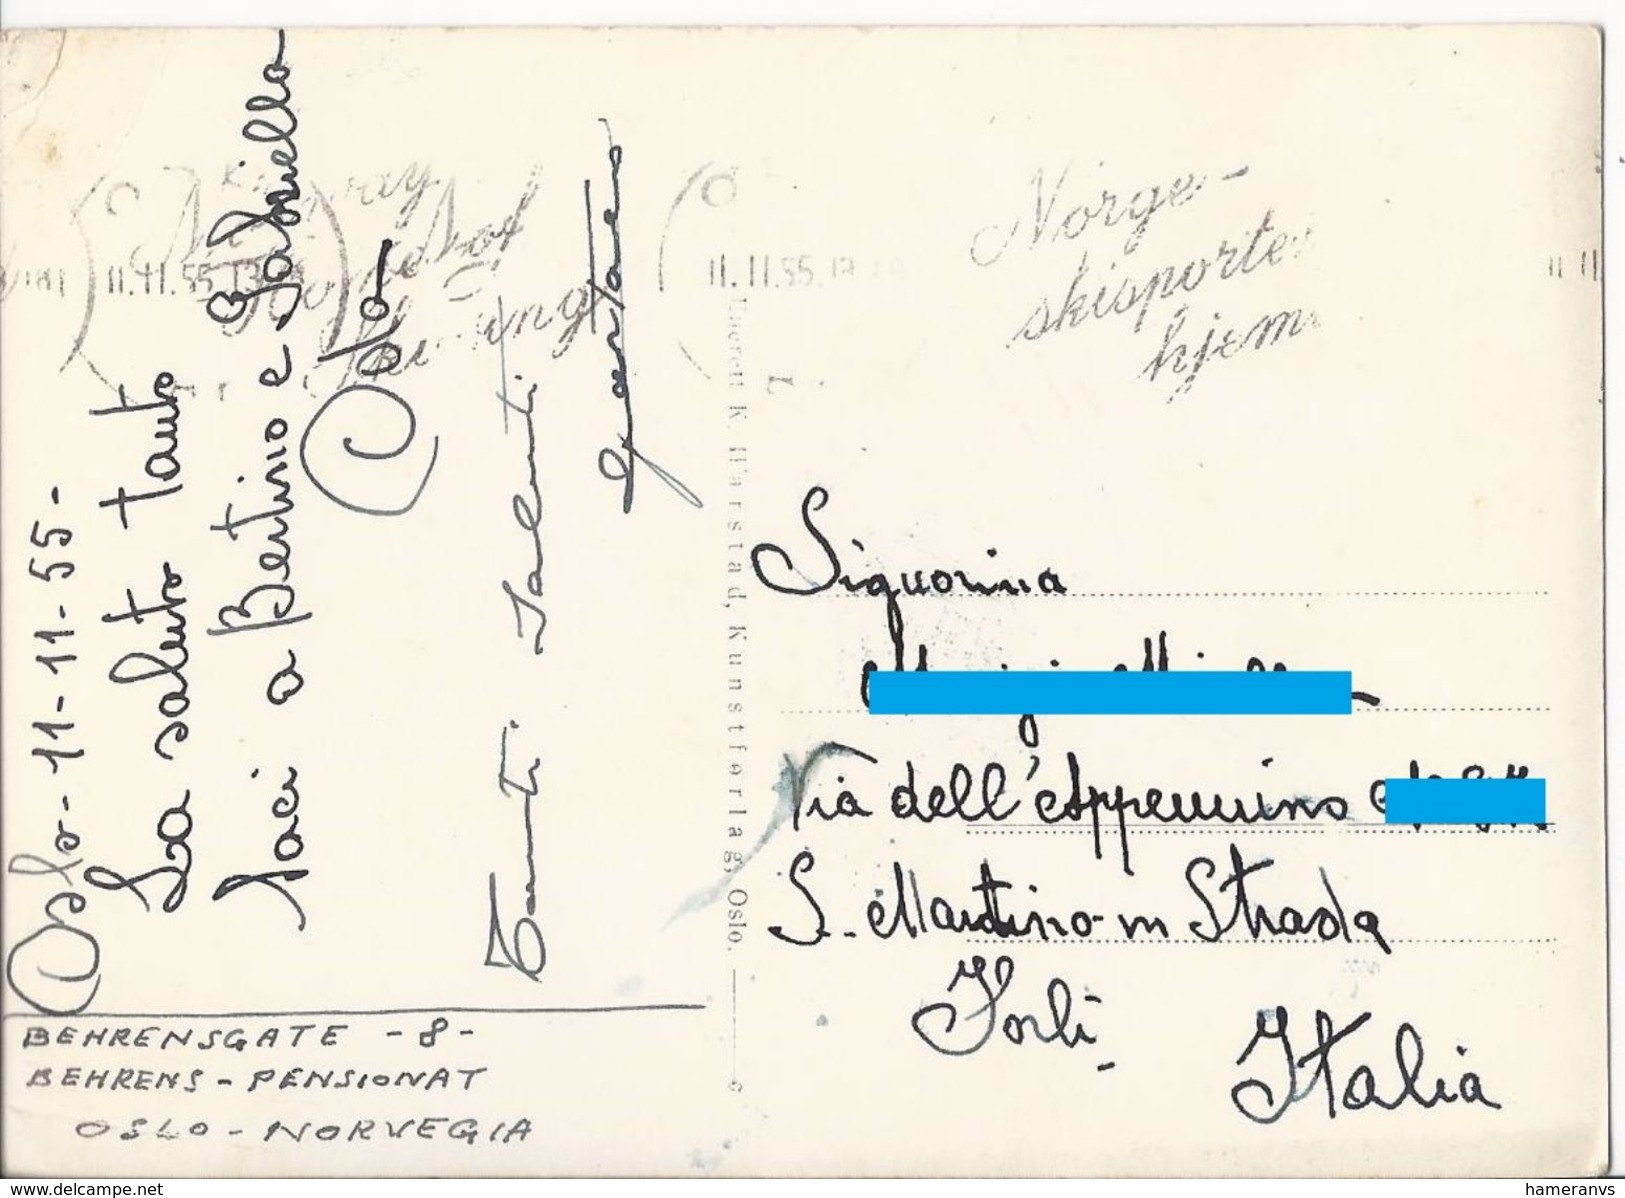 Oslo-11-11-55-
La saluto tanto
baci a Bertino e Gabriella
Oslo
Tanti Saluti
Gaetano
BEHRENSGATE - 8 -
BEHRENS - PENSIONAT
OSLO - NORVEGIA
11.11.55.13
11.11.55.13
Norge -
skisportens
hjem
Eneret: K. Harstad, Kunstforlag, Oslo.
Signorina
Via dell'Appennino
S. Martino in Strada
Forlì -
Italia
www.delcampe.net
hameranvs